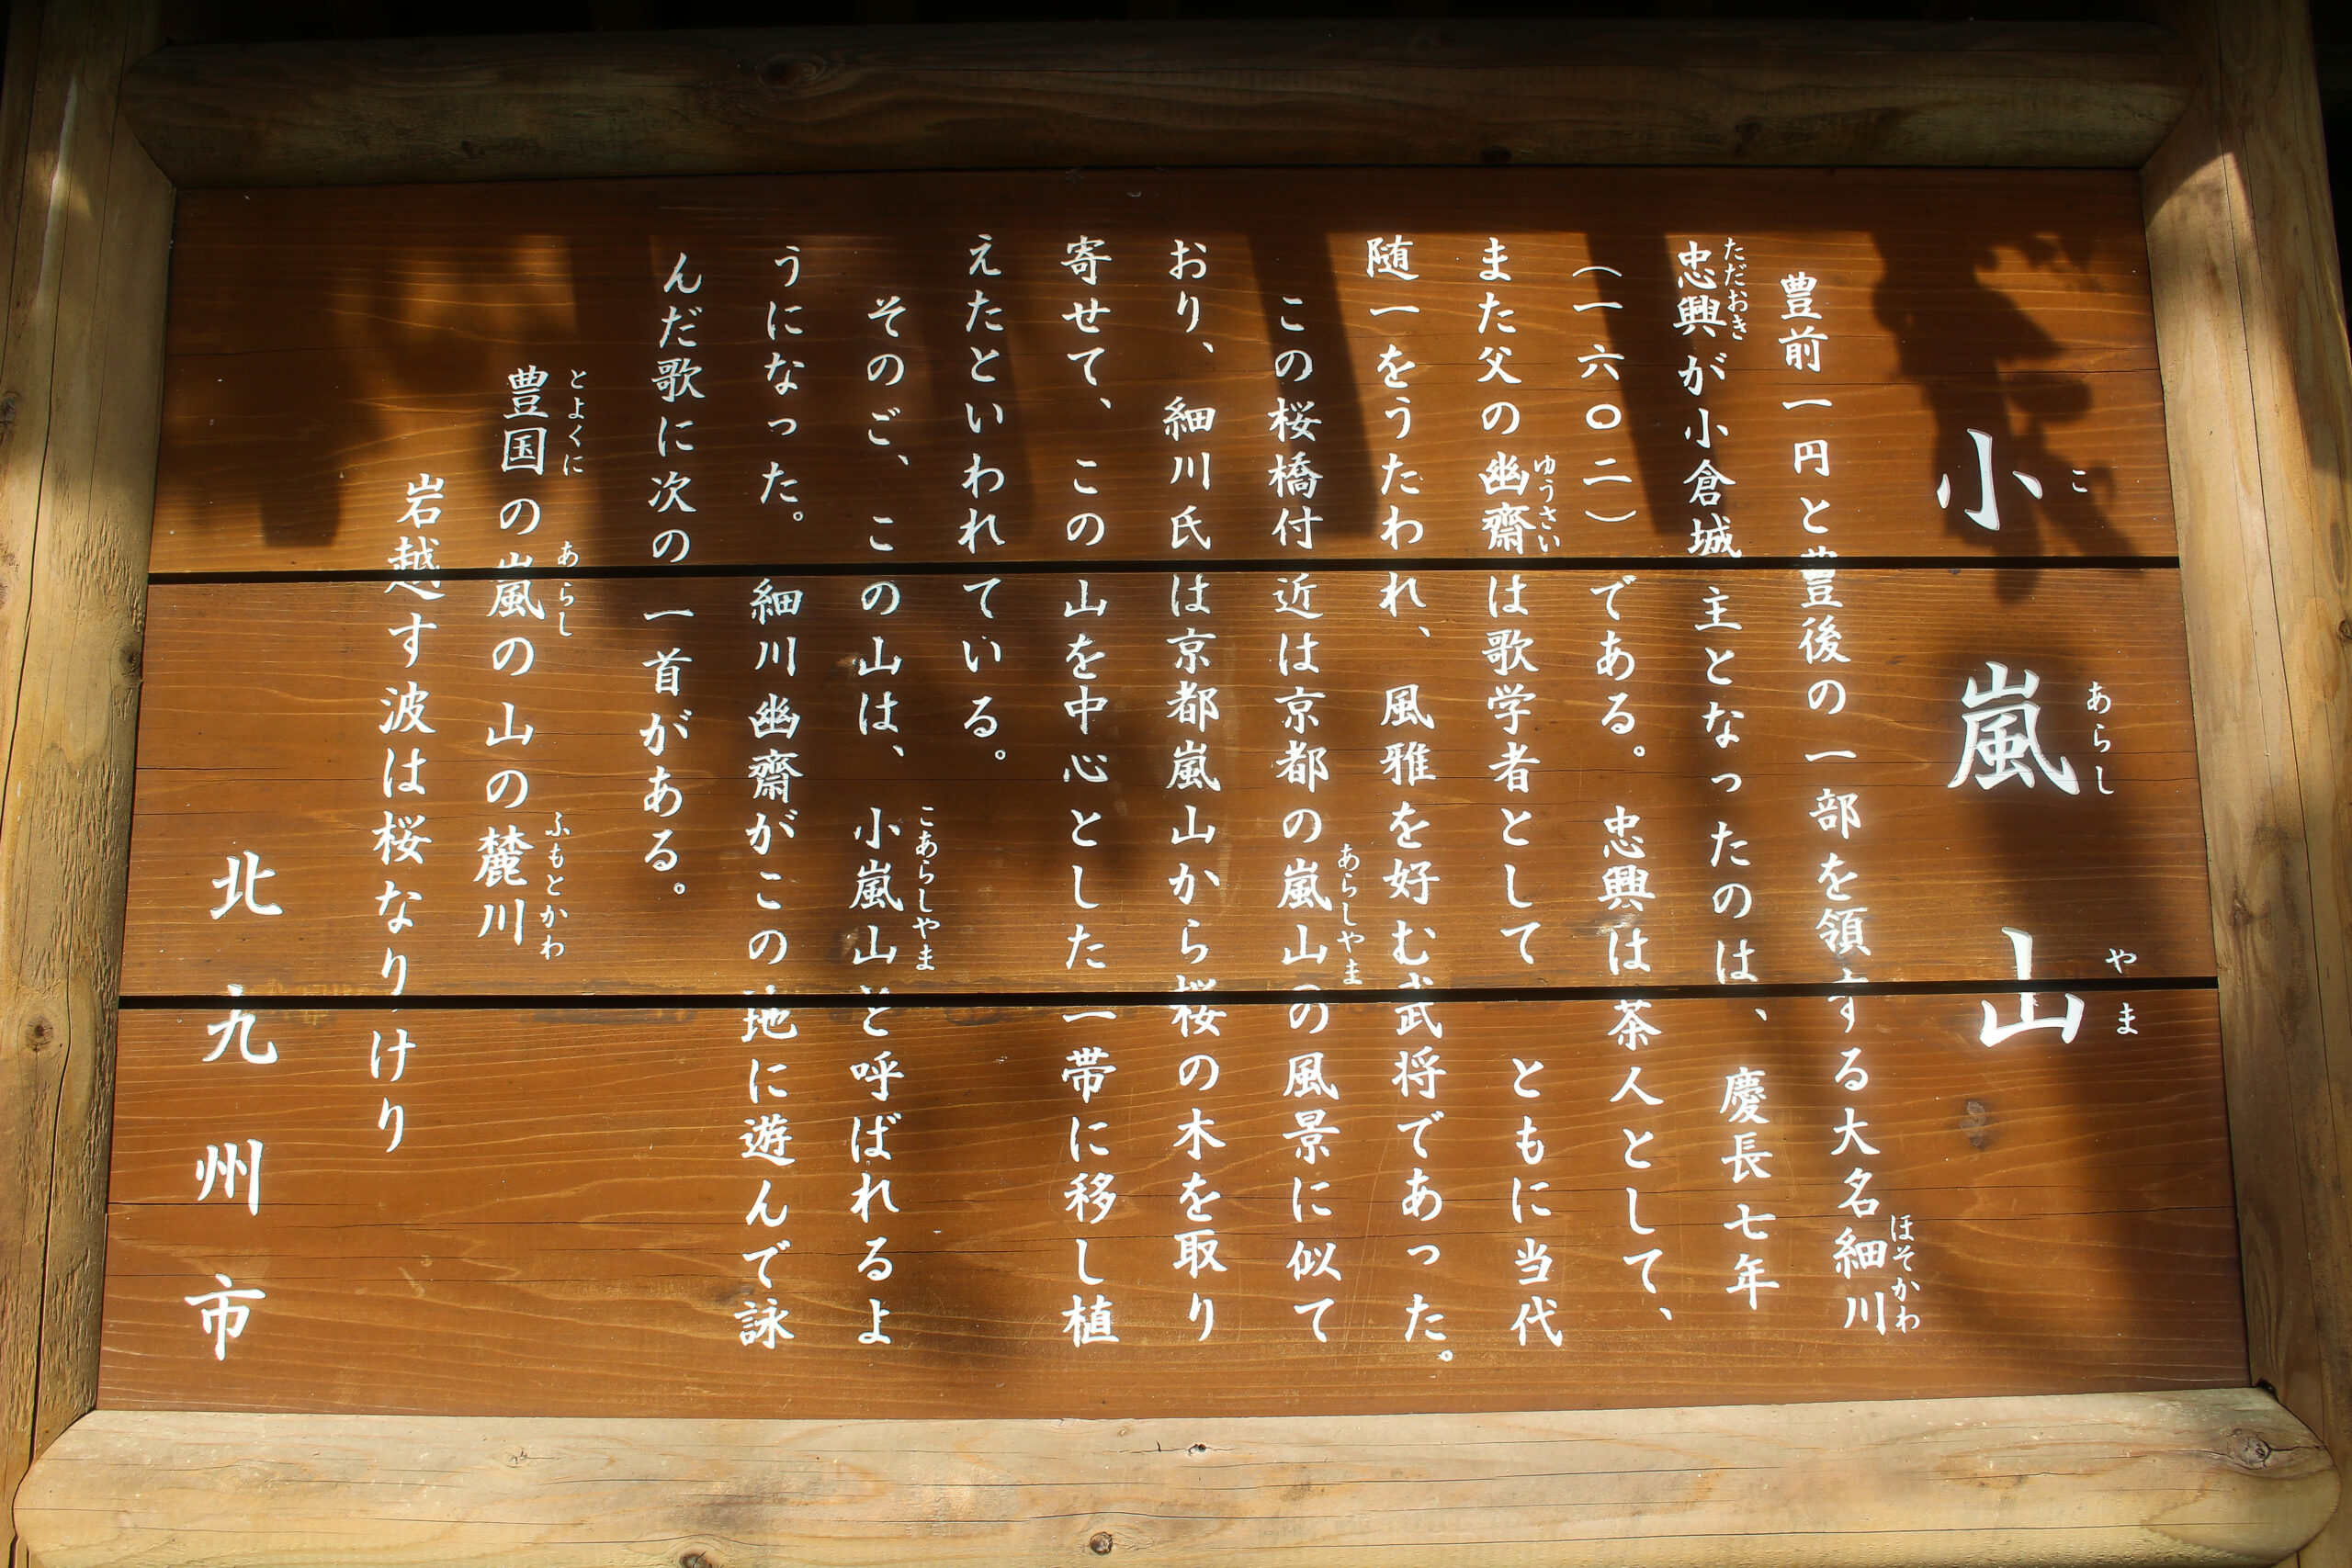 小嵐山
こ あらし やま
豊前一円と豊後の一部を領する大名細川
ほそかわ
忠興が小倉城主となったのは、慶長七年
ただおき
（一六〇二）である。忠興は茶人として、
また父の幽齋は歌学者として ともに当代
ゆうさい
随一をうたわれ、風雅を好む武将であった。
この桜橋付近は京都の嵐山の風景に似て
あらしやま
おり、細川氏は京都嵐山から桜の木を取り
寄せて、この山を中心とした一帯に移し植
えたといわれている。
そのご、この山は、小嵐山と呼ばれるよ
こあらしやま
うになった。細川幽齋がこの地に遊んで詠
んだ歌に次の一首がある。
豊国の嵐の山の麓川
とよくに あらし ふもとかわ
岩越す波は桜なりけり
北九州市